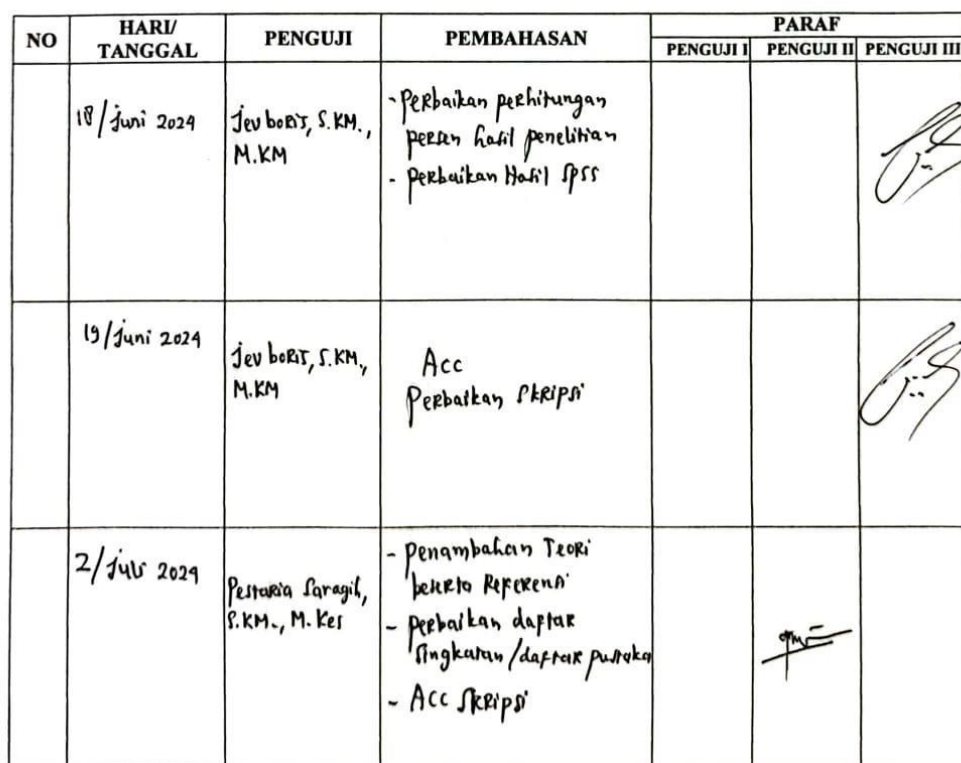 NO
HARI/
TANGGAL
PENGUJI
PEMBAHASAN
PARAF
PENGUJI I
PENGUJI II
PENGUJI III
18/Juni 2024
Jev boris, S.KM.,
M.KM
- Perbaikan perhitungan
persen hasil penelitian
- perbaikan Hasil SPSS
19/Juni 2024
Jev boris, S.KM.,
M.KM
Acc
Perbaikan Skripsi
2/Juli 2024
Pestaria Saragih,
S.KM., M.Kes
- Penambahan Teori
beserta Referensi
- Perbaikan daftar
singkatan/daftar pustaka
- Acc Skripsi